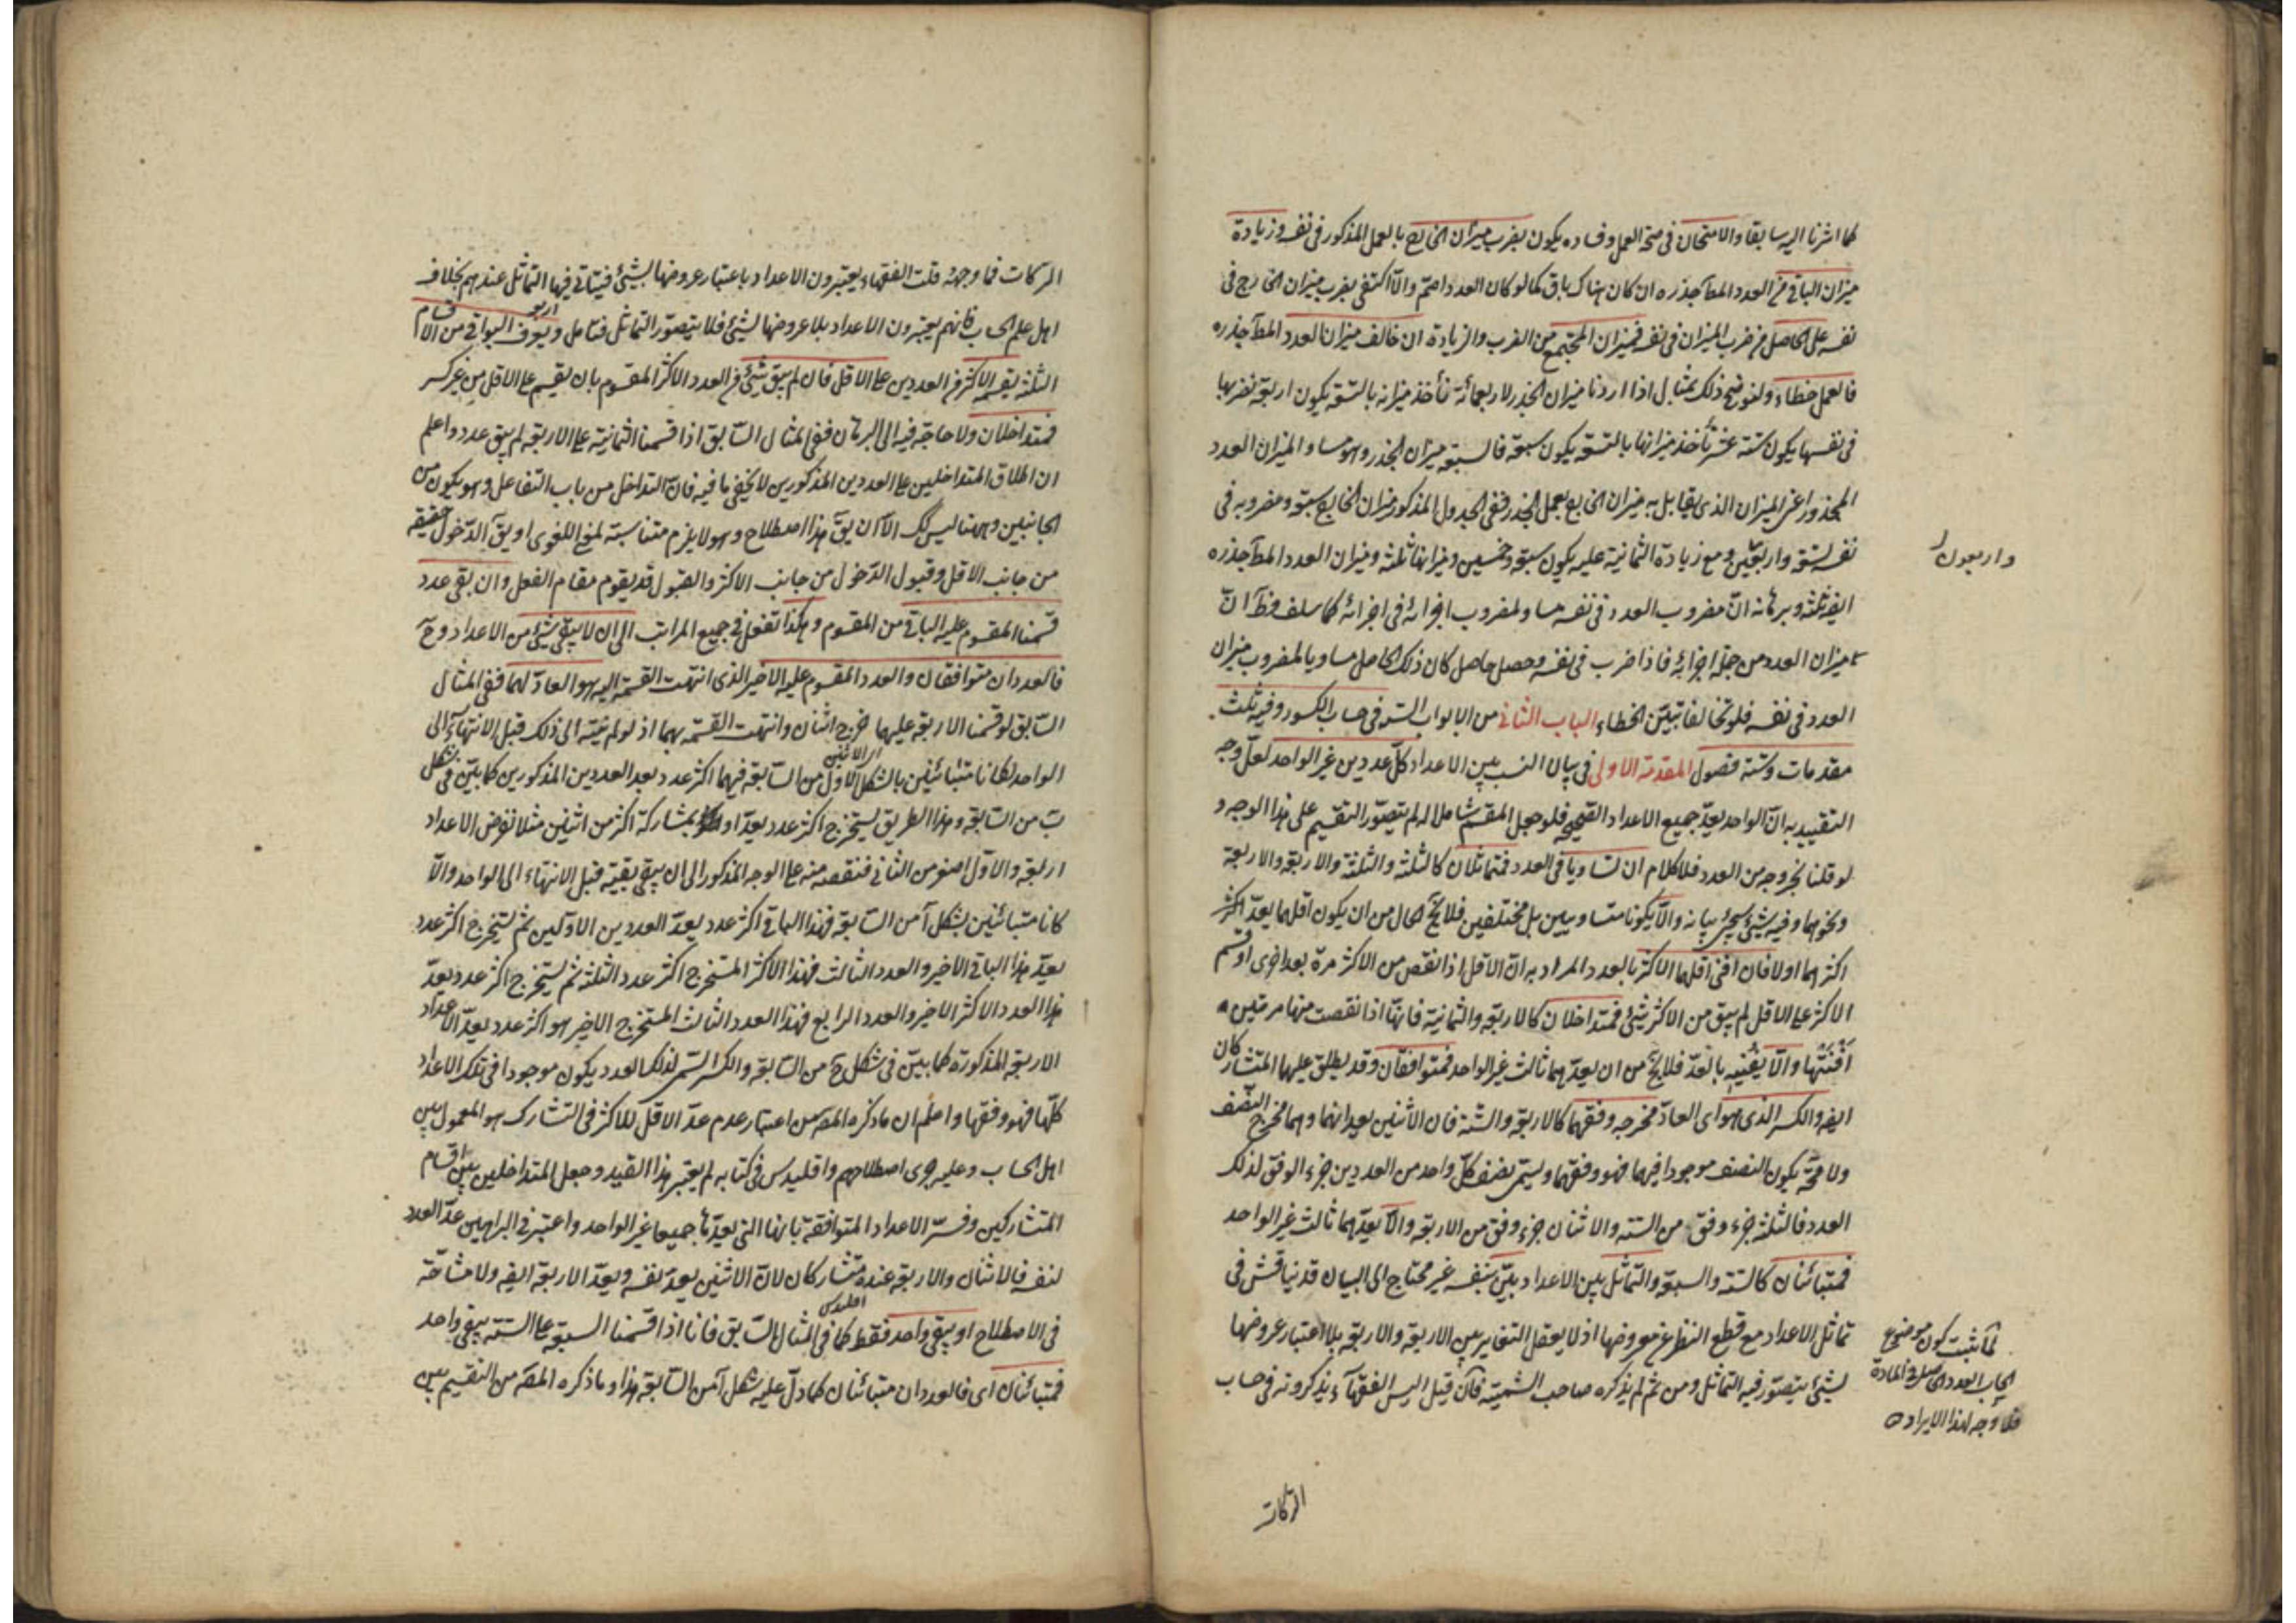 كما اشرنا اليه سابقا والامتحان في صحة العمل وفساده يكون بضرب ميزان الخارج بالعمل المذكور في نفسه وزيادة
ميزان الباقي من العدد المط جذره ان كان هناك باق كما لو كان العدد اصم والا اكتفى بضرب ميزان الخارج في
نفسه على الحاصل من ضرب الميزان في نفسه فميزان المجتمع من الضرب والزيادة ان خالف ميزان العدد المط جذره
فالعمل خطاء ولنوضح ذلك بمثال اذا اردنا ميزان الجذر لاربعمائة نأخذ ميزانه بالتسعة يكون اربعة نضربها
في نفسها يكون ستة عشر نأخذ ميزانها بالتسعة يكون سبعة فالسبعة ميزان الجذر وهو مساو لميزان العدد
المجذور اعني الميزان الذي يقابل به ميزان الخارج بعمل الجذر ففي الجدول المذكور ميزان الخارج سبعة ومضروبه في
نفسه تسعة واربعين ومع زيادة الثمانية عليه يكون سبعة وخمسين وميزانها ثلثة وميزان العدد المط جذره
واربعون
ايضه ثلثة وبرهانه ان مضروب العدد في نفسه مساو لمضروب اجزائه في اجزائه كما سلف فظ ان
ميزان العدد من جملة اجزائه فاذا ضرب في نفسه وحصل حاصل كان ذلك الحاصل مساويا لمضروب ميزان
العدد في نفسه فلو تخالفا تبين الخطاء الباب الثاني من الابواب الستة في حساب الكسور وفيه ثلث
مقدمات وستة فصول المقدمة الاولى في بيان النسب بين الاعداد كل عددين غير الواحد لعل وجه
التقييد به ان الواحد يعد جميع الاعداد الصحيحة فلو جعل المقسم شاملا له لم يتصور التقسيم على هذا الوجه و
لو قلنا بخروجه من العدد فلا كلام ان تساويا في العدد فمتماثلان كالثلثة والثلثة والاربعة والاربعة
ونحوهما وفيه شيء سيجيء بيانه والا يكونا متساويين بل مختلفين فلا يخ الحال من ان يكون اقلهما يعد اكثر
اكثرهما اولا فان افنى اقلهما الاكثر بالعدد المراد به ان الاقل اذا نقص من الاكثر مرة بعد اخرى او قسم
الاكثر على الاقل لم يبق من الاكثر شيء فمتداخلان كالاربعة والثمانية فانها اذا نقصت منها مرتين
افنتها والا يفنيه بالعد فلا يخ من ان يعدهما ثالث غير الواحد فمتوافقان وقد يطلق عليهما المتشاركان
ايضه والكسر الذي هو اي العاد مخرجه وفقهما كالاربعة والستة فان الاثنين يعدانهما وهما مخرج النصف
ولا محة يكون النصف موجودا فيهما فهو وفقهما ويسمى نصف كل واحد من العددين جزء الوفق لذلك
العدد فالثلثة جزء وفق من الستة والاثنان جزء وفق من الاربعة والا يعدهما ثالث غير الواحد
فمتبائنان كالستة والسبعة والتماثل بين الاعداد بين بنفسه غير محتاج الى البيان قد نياقش في
تماثل الاعداد مع قطع النظر عن معروضها اذ لا يعقل التغاير بين الاربعة والاربعة بلا اعتبار عروضها
لشيء يتصور فيه التماثل ومن ثم لم يذكره صاحب الشمسية فان قيل اليس الفقهاء يذكرونه في حساب
لما ثبت كون موضوع
الحساب العدد الحاصل في المادة
فلا وجه لهذا الايراد
التركات
التركات فما وجهه قلت الفقهاء يعتبرون الاعداد باعتبار عروضها لشيء فيتاتى فيها التماثل عندهم بخلاف
اهل علم الحساب فانهم يعتبرون الاعداد بلا عروضها لشيء فلا يتصور التماثل فتامل ويعرف البواقي من الاقسام
الثلثة يقسم الاكثر من العددين على الاقل فان لم يبق شيء من العدد الاكثر المقسوم بان يقسم على الاقل من غير كسر
فمتداخلان ولا حاجة فيه الى البرهان ففي المثال السابق اذا قسمنا الثمانية على الاربعة لم يبق عدد واعلم
ان اطلاق المتداخلين على العددين المذكورين لا يخفى ما فيه فان التداخل من باب التفاعل وهو يكون من
الجانبين وههنا ليس كك الا ان يق هذا اصطلاح وهو لا يلزم متناسبته لمعنى اللغوي او يق الدخول حقيقة
من جانب الاقل وقبول الدخول من جانب الاكثر والقبول قد يقوم مقام الفعل وان بقى عدد
قسمنا المقسوم عليه الباقي من المقسوم وهكذا تفعل في جميع المراتب الى ان لا يبقى شيء من الاعداد وح
فالعددان متوافقان والعدد المقسوم عليه الاخير الذي انتهت القسمة اليه هو العاد لهما ففي المثال
السابق لو قسمنا الاربعة عليهما خرج اثنان وانتهت القسمة بهما اذ لو لم ينته الى ذلك قبل الانتهاء الى
اي الاثنين
الواحد لكانا متبائنين بالشكل الاول من السابعة فهما اكثر عدد يعد العددين المذكورين كما بين في شكل
ب من السابعة وبهذا الطريق يستخرج اكثر عدد يعد اعدادا مشاركة اكثر من اثنين مثلا نفرض الاعداد
اربعة والاول اصغر من الثاني فننقصه منه على الوجه المذكور الى ان يبقى بقية قبل الانتهاء الى الواحد والا
كانا متبائنين بشكل آ من السابعة فهذا الباقي اكثر عدد يعد العددين الاولين ثم نستخرج اكثر عدد
يعد هذا الباقي الاخير والعدد الثالث فهذا الاكثر المستخرج اكثر عدد الثلثة ثم نستخرج اكثر عدد يعد
هذا العدد الاكثر الاخير والعدد الرابع فهذا العدد الثالث المستخرج الاخير هو اكثر عدد يعد الاعداد
الاربعة المذكورة كما بين في شكل ج من السابعة والكسر السمي لذلك العدد يكون موجودا في تلك الاعداد
كلها فهو وفقها واعلم ان ما ذكره المصه من اعتبار عدم عد الاقل للاكثر في التشارك هو المعمول بين
اهل الحساب وعليه جرى اصطلاحهم واقليدس في كتابه لم يعتبر هذا القيد وجعل المتداخلين من اقسام
المتشاركين وفسر الاعداد المتوافقة بانها التي يعدها جميعا غير الواحد واعتبر في البراهين عد العدد
لنفسه فالاثنان والاربعة عنده متشاركان لان الاثنين يعد نفسه ويعد الاربعة ايضه ولا مشاحة
اقليدس
في الاصطلاح او يبقى واحد فقط كما في المثال السابق فانا اذا قسمنا السبعة على الستة يبقى واحد
فمتبائنان اي فالعددان متبائنان كما دل عليه شكل آ من السابعة هذا وما ذكره المصه من التقسيم بين